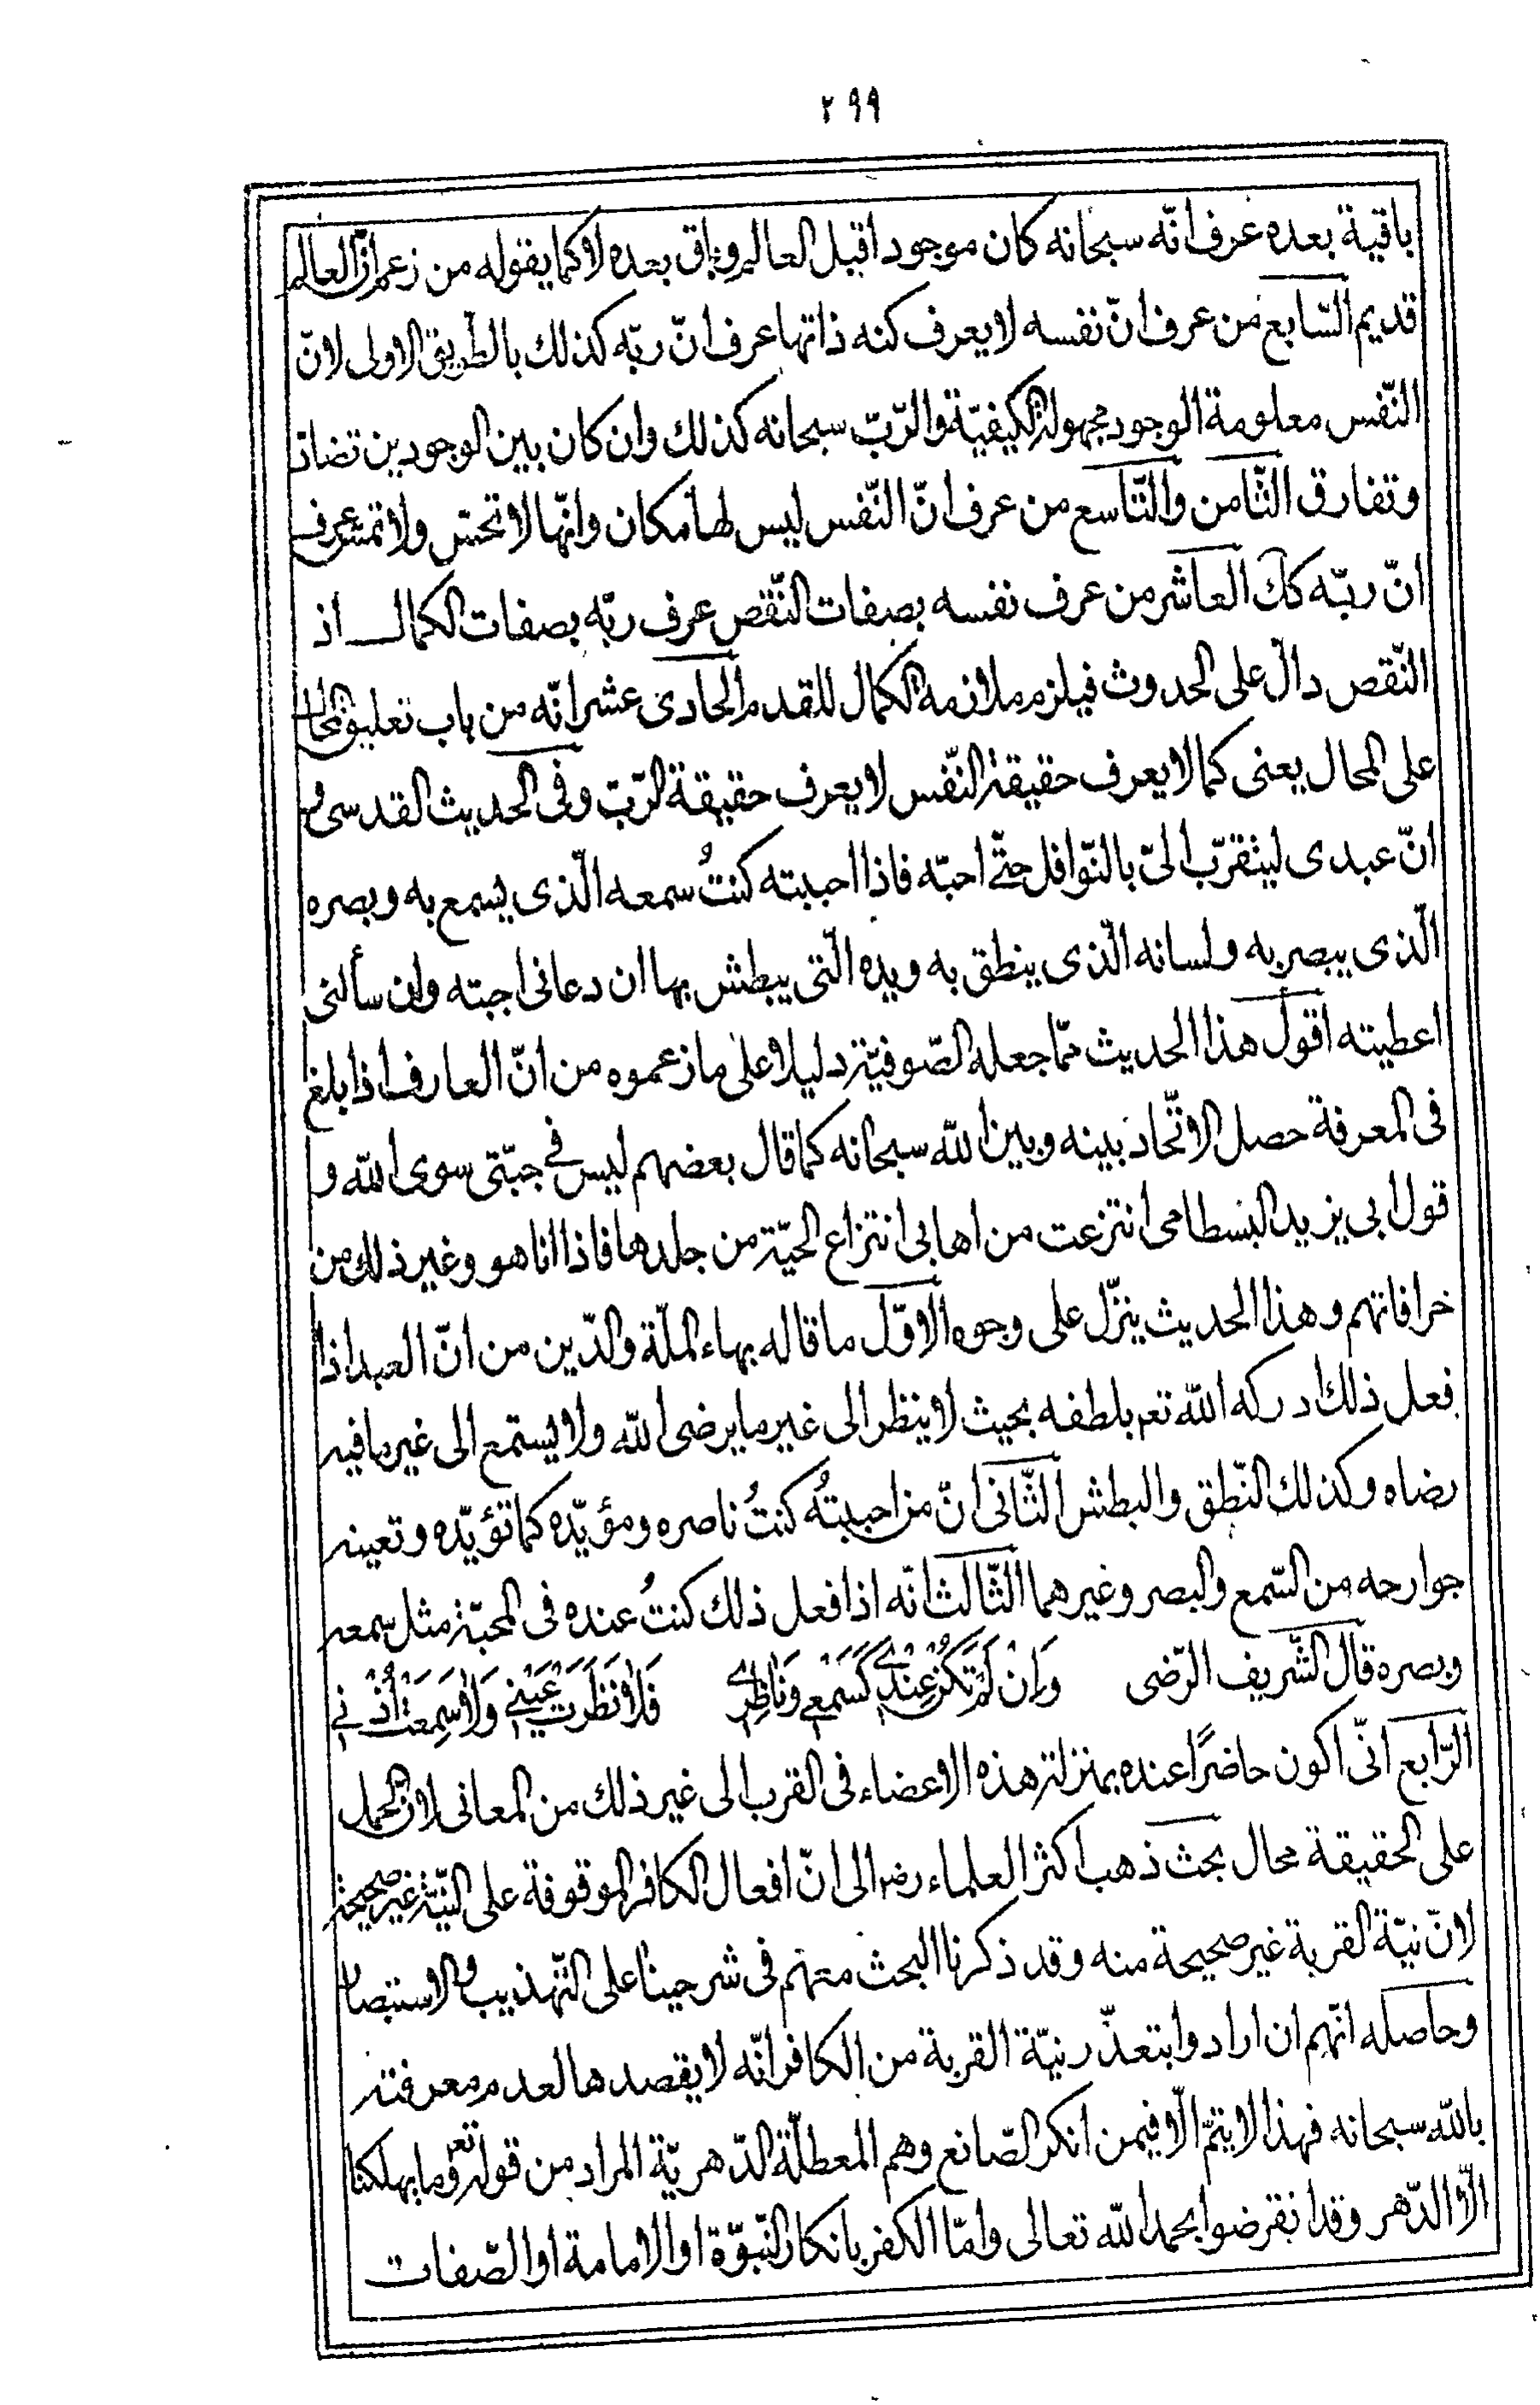 ٢٩٩
باقية بعده عرف انّه سبحانه كان موجودا قبل العالم وباق بعده لا كما يقوله من زعم انّ العالم
قديم السّابع من عرف انّ نفسه لا يعرف كنه ذاتها عرف انّ ربّه كذلك بالطّريق الاولى لانّ
النّفس معلومة الوجود مجهولة الكيفيّة والرّبّ سبحانه كذلك وان كان بين الوجودين تضادّ
وتفارق الثّامن والتّاسع من عرف انّ النّفس ليس لها مكان وانّها لا تحسّ ولا تمسّ عرف
انّ ربّه كك العاشر من عرف نفسه بصفات النّقص عرف ربّه بصفات الكمال اذ
النّقص دالّ على الحدوث فيلزم ملازمه الكمال للقدم الحادى عشر انّه من باب تعليق المحال
على المحال يعنى كما لا يعرف حقيقة النّفس لا يعرف حقيقة الرّبّ وفى الحديث القدسى
انّ عبدى ليتقرّب الىّ بالنّوافل حتّى احبّه فاذا احببته كنتُ سمعه الّذى يسمع به وبصره
الّذى يبصر به ولسانه الّذى ينطق به ويده الّتى يبطش بها ان دعانى اجبته وان سألنى
اعطيته اقول هذا الحديث ممّا جعله الصّوفيّة دليلا على ما زعموه من انّ العارف اذا بلغ
فى المعرفة حصل الاتّحاد بينه وبين الله سبحانه كما قال بعضهم ليس فى جبّتى سوى الله و
قول ابى يزيد البسطامى انتزعت من اهابى انتزاع الحيّة من جلدها فاذا انا هو وغير ذلك من
خرافاتهم وهذا الحديث ينزّل على وجوه الاوّل ما قاله بهاء الملّة والدّين من انّ العبد اذا
فعل ذلك ادركه الله تعم بلطفه بحيث لا ينظر الى غير ما يرضى الله ولا يستمع الى غير ما فيه
رضاه وكذلك النّطق والبطش الثّانى انّ من احببتُه كنتُ ناصره ومؤيّده كما تؤيّده وتعينه
جوارحه من السّمع والبصر وغيرهما الثّالث انّه اذا فعل ذلك كنتُ عنده فى المحبّة مثل سمعه
وبصره قال الشّريف الرّضى وَاِنْ لَمْ تَكُنْ عِنْدِي كَسَمْعِي وَنَاظِرِي فَلَا نَظَرَتْ عَيْنِي وَلَا سَمِعَتْ اُذْنِي
الرّابع انّى اكون حاضرًا عنده بمنزلة هذه الاعضاء فى القرب الى غير ذلك من المعانى لانّ الحمل
على الحقيقة محال بحث ذهب اكثر العلماء رضه الى انّ افعال الكافر الموقوفة على النّيّة غير صحيحة
لانّ نيّة القربة غير صحيحة منه وقد ذكرنا البحث معهم فى شرحينا على التّهذيب والاستبصار
وحاصله انّهم ان ارادوا بتعذّر نيّة القربة من الكافر انّه لا يقصدها لعدم معرفته
بالله سبحانه فهذا لا يتمّ الّا فيمن انكر الصّانع وهم المعطلّة الدّهريّة المراد من قوله تعم وما يهلكنا
الّا الدّهر وقد انقرضوا بحمد الله تعالى وامّا الكفر بانكار النّبوّة او الامامة او الصّفات